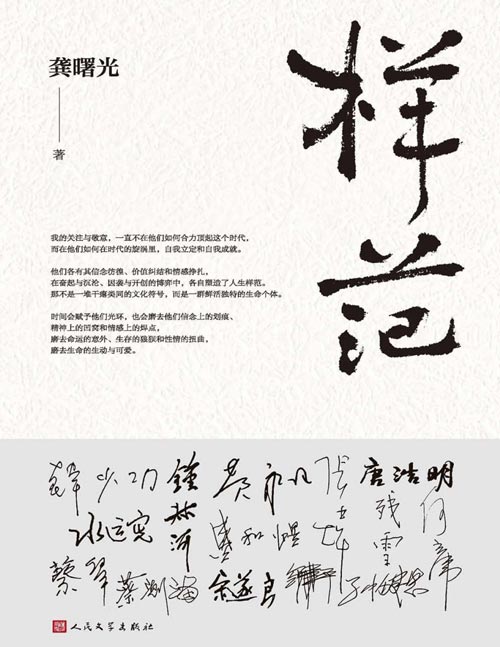 样范
龚曙光
著
我的关注与敬意，一直不在他们如何合力顶起这个时代，
而在他们如何在时代的旋涡里，自我立定和自我成就。
他们各有其信念彷徨、价值纠结和情感挣扎，
在奋起与沉沦、因袭与开创的博弈中，各自塑造了人生样范。
那不是一堆干瘪类同的文化符号，而是一群鲜活独特的生命个体。
时间会赋予他们光环，也会磨去他们信念上的划痕、
精神上的凹窝和情感上的焊点，
磨去命运的意外、生存的狼狈和性情的扭曲，
磨去生命的生动与可爱。
韩少功 锺叔河 黄永玉 张士 唐浩明
水运宪 盛和煜 残雪 何立伟
蔡皋 蔡测海 余遂良
人民文学出版社